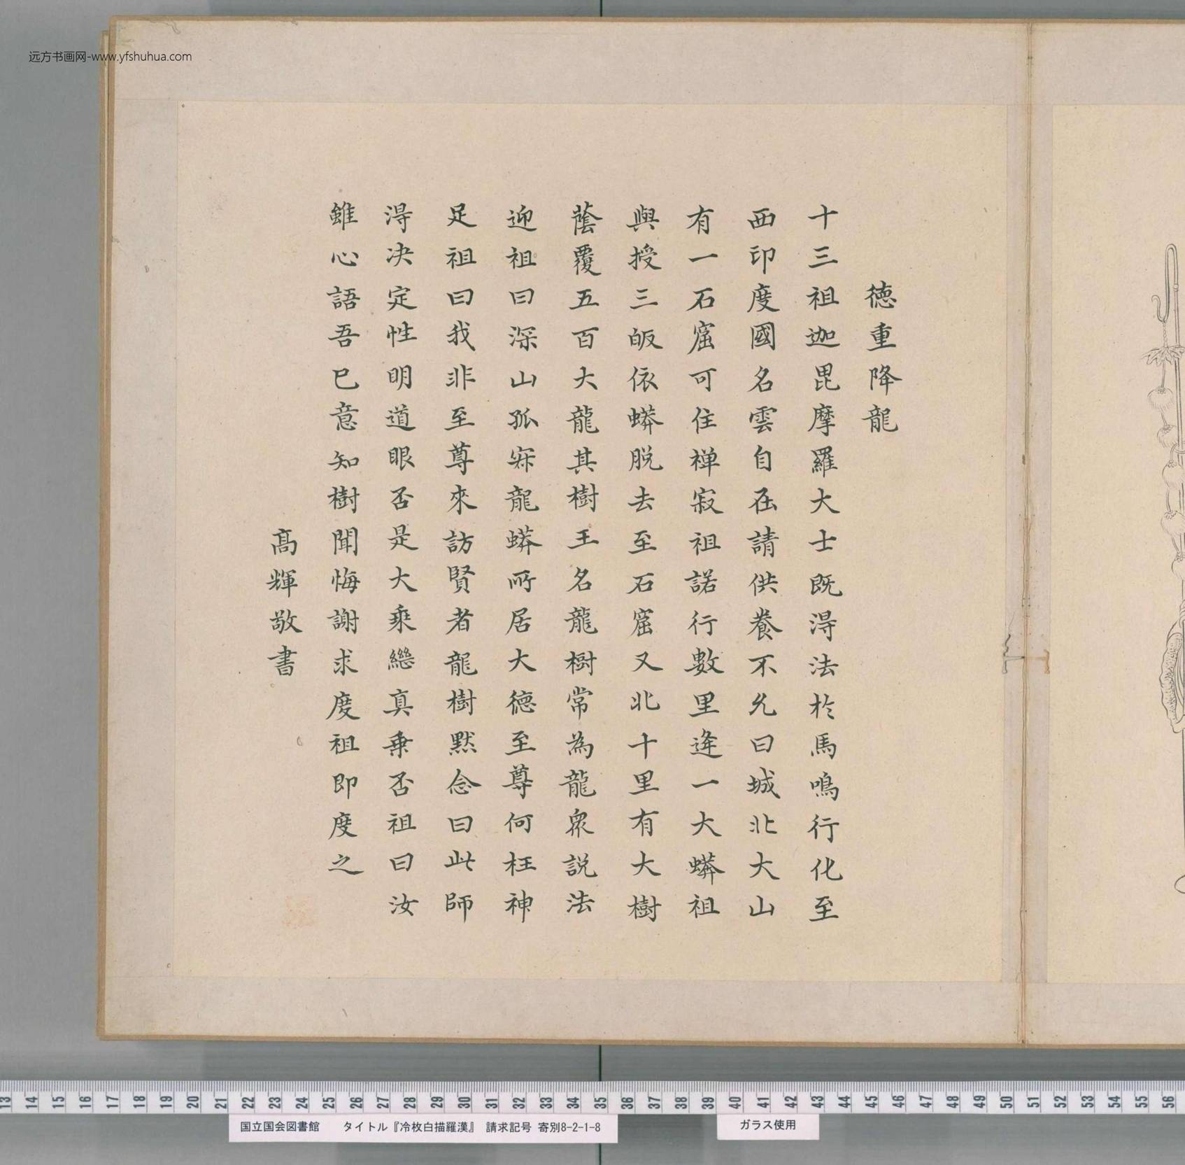 远方书画网-www.yfshuhua.com
德重降龍
十三祖迦毘摩羅大士既得法於馬鳴行化至
西印度國名雲自在請供養不允曰城北大山
有一石窟可住禅寂祖諾行數里逢一大蟒祖
與授三皈依蟒脱去至石窟又北十里有大樹
蔭覆五百大龍其樹王名龍樹常為龍衆説法
迎祖曰深山孤寂龍蟒所居大德至尊何枉神
足祖曰我非至尊來訪賢者龍樹默念曰此師
得决定性明道眼否是大乘繼真乗否祖曰汝
雖心語吾已意知樹聞悔謝求度祖即度之
高輝敬書
13 14 15 16 17 18 19 20 21 22 23 24 25 26 27 28 29 30 31 32 33 34 35 36 37 38 39 40 41 42 43 44 45 46 47 48 49 50 51 52 53 54 55 56
国立国会図書館 タイトル『冷枚白描羅漢』 請求記号 寄別8-2-1-8
ガラス使用